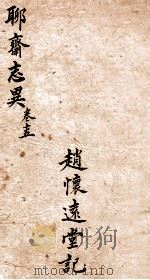 聊齋志異卷五
趙懷遠堂記